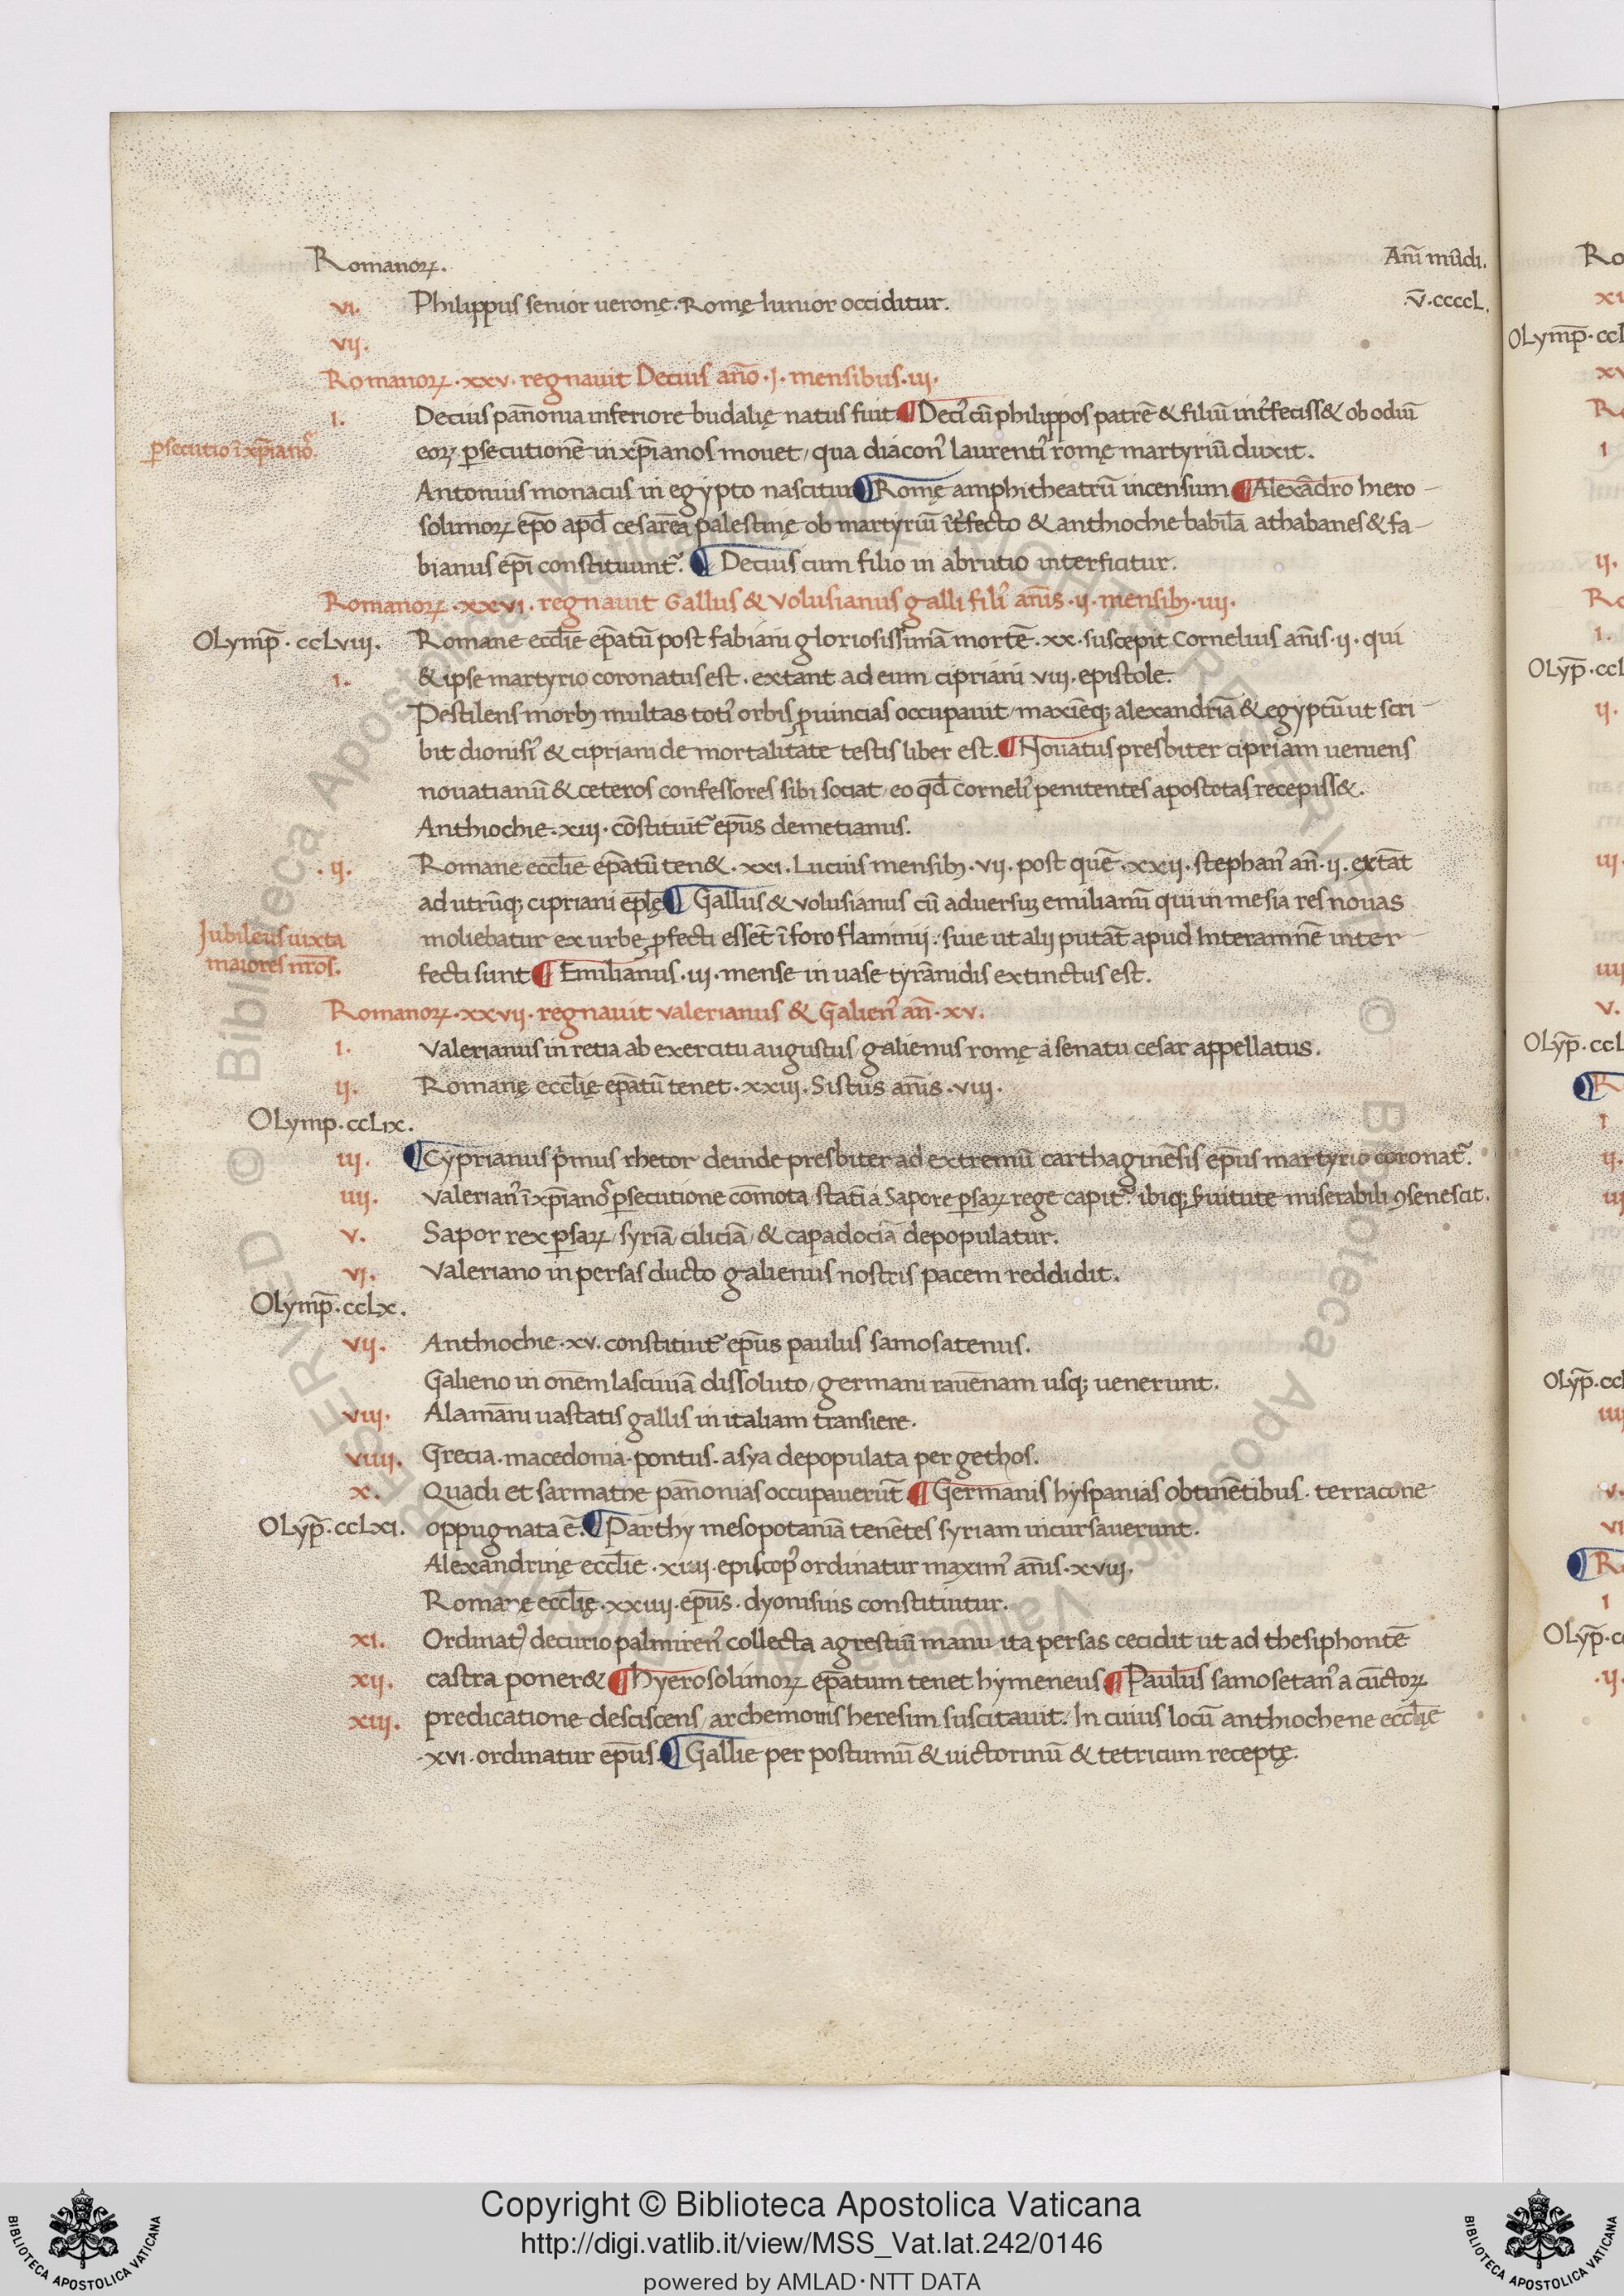 Romanoꝝ. Anī mūdi.
vi. Philippus senior ueronę. Romę Iunior occiditur. .v̄.ccccL.
vii.
Romanoꝝ .xxv. regnauit Decius año .j. mensibus .iii.
i. Decius pañonia inferiore budalię natus fuit ¶ Deciꝰ cū philippos patrē & filiū int̄feciss& ob odiū
ꝑsecutio ī xp̄ianoꝝ. eoꝝ ꝑsecutionē in xp̄ianos mouet, qua diaconꝰ laurentiꝰ romę martyriū duxit.
Antonius monacus in egypto nascitur ¶ Romę amphitheatrū incensum ¶ Alexādro hiero-
solimoꝝ ep̄o apđ cesarēā palestinę ob martyriū īt̄fecto & anthiochie babila athabanes & fa-
bianus ep̄i constituunt̄. ¶ Decius cum filio in abrutio interficitur.
Romanoꝝ .xxvi. regnauit Gallus & Volusianus galli filiꝰ anīs .ii. mensibꝫ .iiii.
Olymp̄. ccLviii. Romane eccl̄ie ep̄atū post fabiani gloriosissimā mortē .xx. suscepit Cornelius anīs .ii. qui
i. & ipse martyrio coronatus est. extant ad eum cipriani viii. epistole.
Pestilens morbꝫ multas totiꝰ orbis ꝓuincias occupauit, maxīeqꝫ alexandriā & egyptū ut scri-
bit dionisiꝰ & cipriani de mortalitate testis liber est. ¶ Nouatus presbiter cipriani ueniens
nouatianū & ceteros confessores sibi sociat, eo qđ Corneliꝰ penitentes apostotas recepiss&.
Anthiochie .xiii. cōstituit̄ ep̄us demetianus.
.ii. Romane eccl̄ie ep̄atū ten& .xxi. Lucius mensibꝫ .vii. post quē .xxii. stephanꝰ an̄ .ii. extāt
ad utrūqꝫ cipriani ep̄lę ¶ Gallus & volusianus cū aduersuꝫ emilianū qui in mesia res nouas
Jubileus iuxta moliebatur ex urbe ꝓfecti essēt ī foro flaminii. siue ut alij putāt apud Interamnē inter-
maiores nr̄os. fecti sunt ¶ Emilianus .iii. mense in uase tyrānidis extinctus est.
Romanoꝝ .xxvii. regnauit valerianus & Galienꝰ an̄ .xv.
i. Valerianus in retia ab exercitu augustus, galienus romę a senatu cesar appellatus.
ii. Romanę eccl̄ię ep̄atū tenet .xxiii. Sistus anīs .viii.
Olymp. ccLix.
iii. ¶ Cyprianus p̄mus rhetor deinde presbiter ad extremū carthaginēsis ep̄us martyrio coronat̄.
iiii. Valerianꝰ ī xp̄ianoꝝ ꝑsecutione cōmota, statī a Sapore ꝑsaꝝ rege capit̄. ibiqꝫ s̄uitute miserabili ꝯsenescit.
v. Sapor rex ꝑsaꝝ, syriā, ciliciā, & capadociā depopulatur.
vi. Valeriano in persas ducto galienus nostris pacem reddidit.
Olymp̄. ccLx.
vii. Anthiochie .xv. constituit̄ ep̄us paulus samosatenus.
Galieno in onēm lasciuiā dissoluto, germani rauēnam usqꝫ uenerunt.
viii. Alamāni uastatis gallis in italiam transiere.
viiii. Grecia. macedonia. pontus. asya depopulata per gethos.
x. Quadi et sarmathe pañonias occupauerūt ¶ Germanis hyspanias obtinētibus. terracone
Olyp̄. ccLxi. oppugnata ē. ¶ Parthy mesopotaniā tenētes syriam incursauerunt.
Alexandrinę eccl̄ie .xiiii. episcopꝰ ordinatur maximꝰ anīs .xviii.
Romanę eccl̄ię .xxiiii. ep̄us. dyonisius constituitur.
xi. Ordinatꝰ decurio palmirenꝰ collecta agrestiū manu, ita persas cecidit ut ad thesiphontē
xii. castra poner& ¶ Hyerosolimoꝝ ep̄atum tenet hymeneus ¶ Paulus samosetanꝰ a cūctoꝝ
xiii. predicatione desciscens, archemonis heresim suscitauit. In cuius locū anthiochene eccl̄ię
.xvi. ordinatur ep̄us. ¶ Gallie per postumū & uictorinū & tetricum receptę.
Copyright © Biblioteca Apostolica Vaticana
http://digi.vatlib.it/view/MSS_Vat.lat.242/0146
powered by AMLAD·NTT DATA